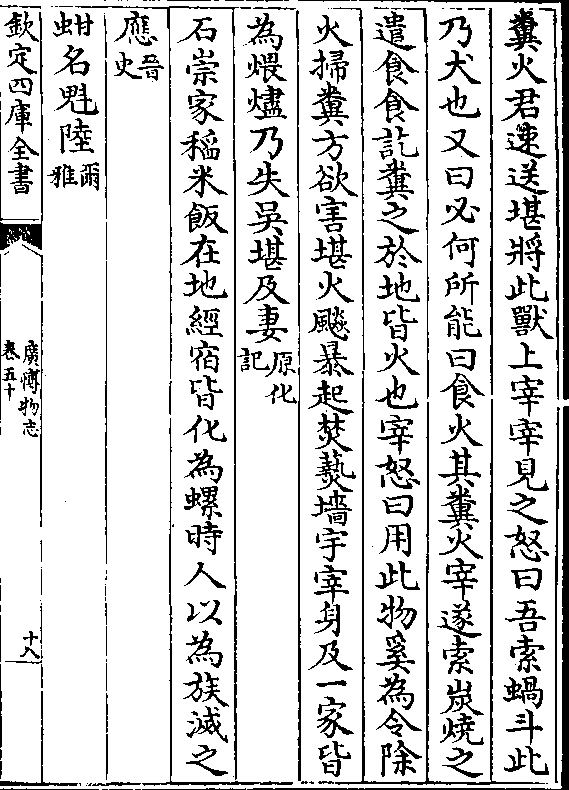 糞火君速送堪將此獸上宰宰見之怒曰吾索蝸斗此
乃犬也又曰必何所能曰食火其糞火宰遂索炭燒之
遣食食訖糞之於地皆火也宰怒曰用此物奚為令除
火掃糞方欲害堪火飈暴起焚爇墻宇宰身及一家皆
為煨燼乃失吳堪及妻原化記
石崇家稻米飯在地經宿皆化為螺時人以為族滅之
應晉史
蚶名魁陸爾雅
欽定四庫全書
廣博物志
卷五十
十八